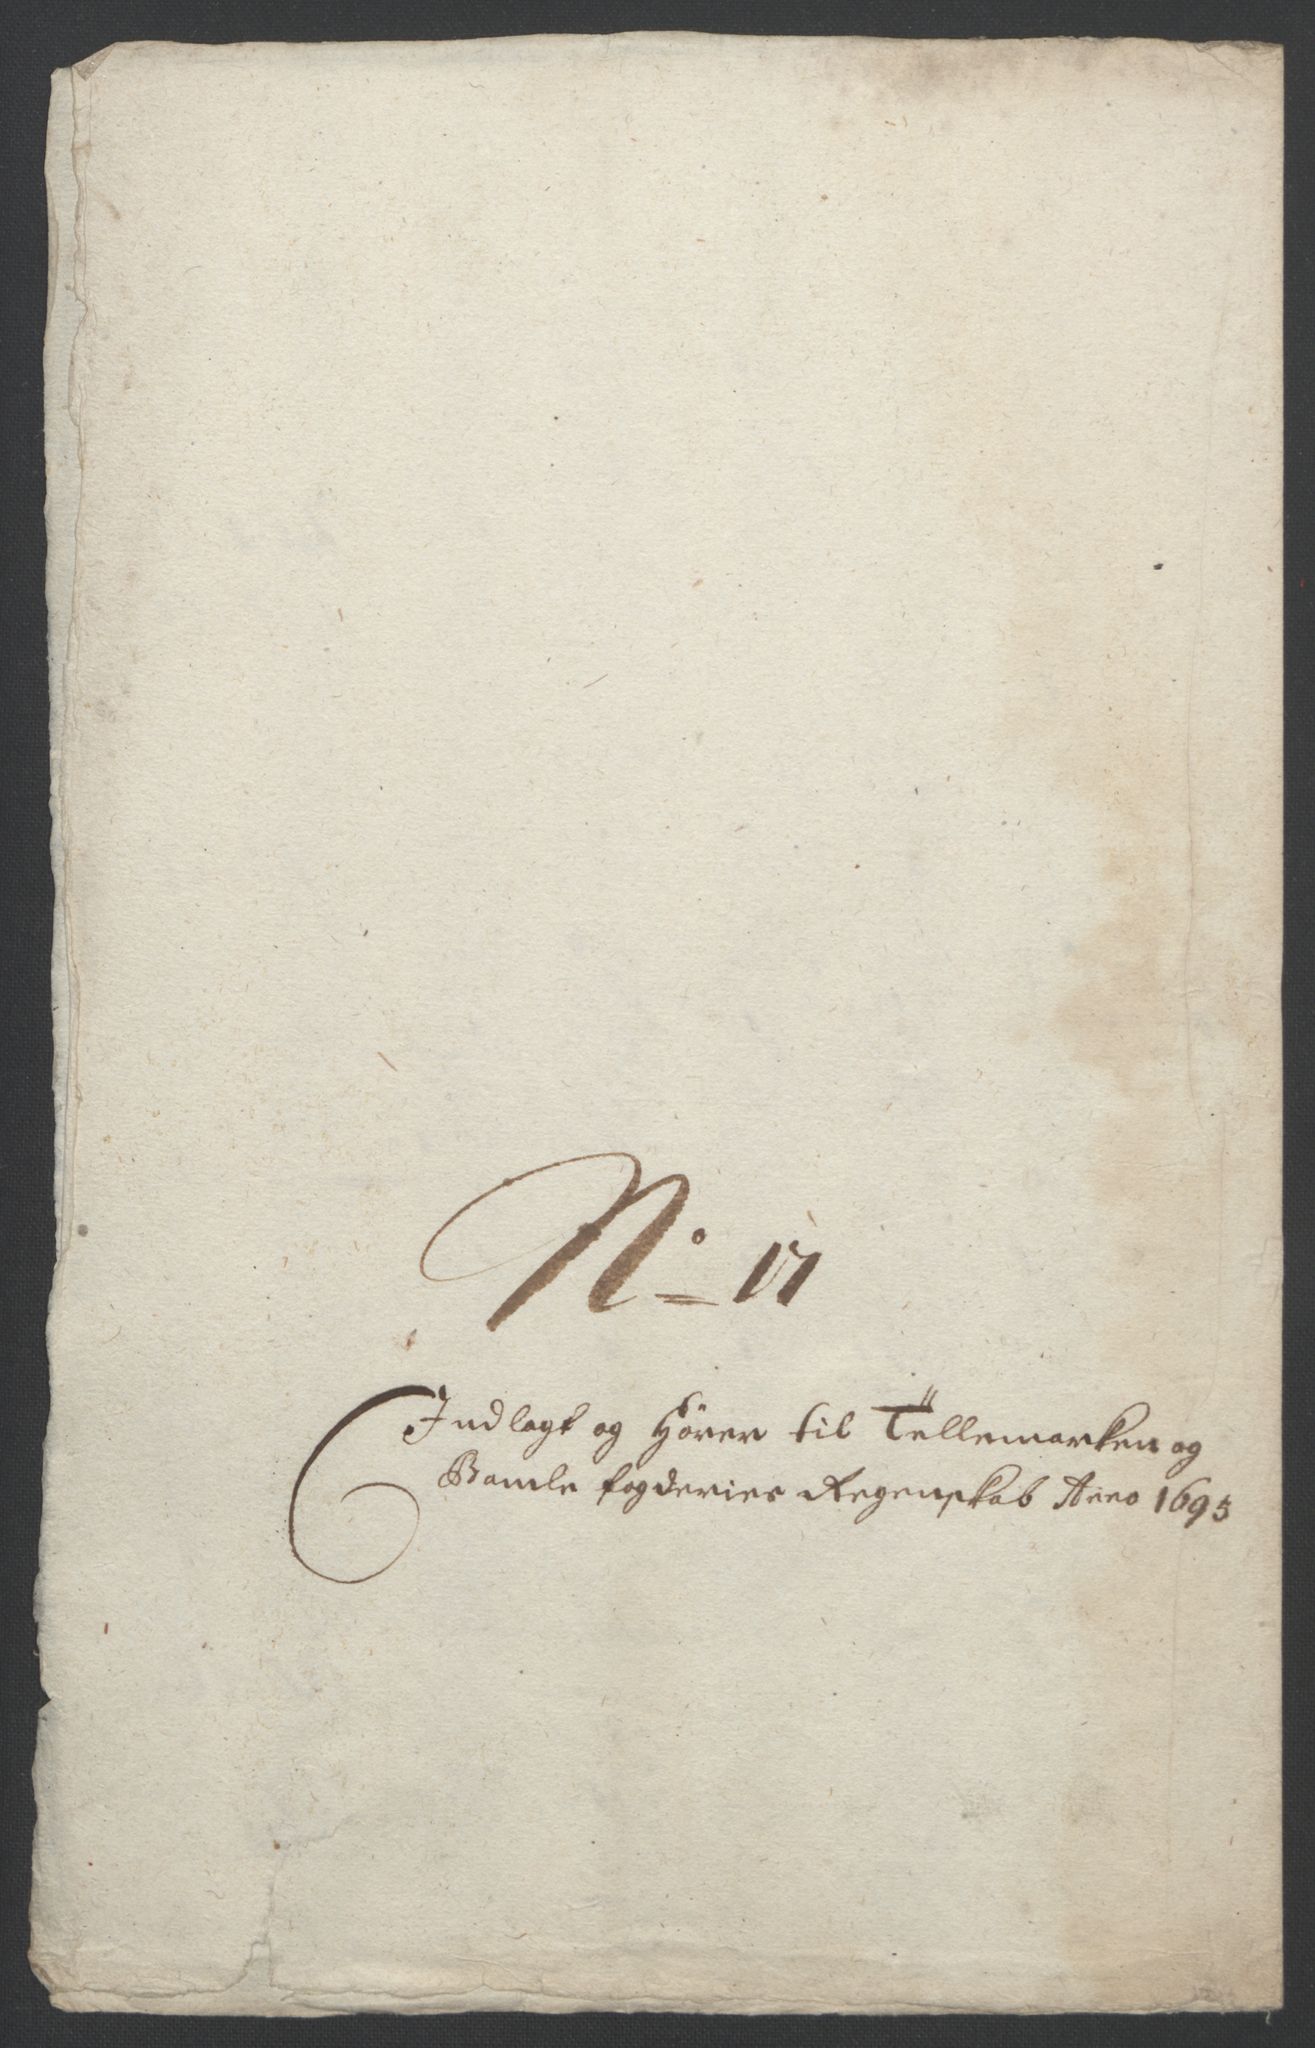 No 17
Indlagt og Hörer til Tellemarken og
Bamle fogderies Regenskab Anno 1693